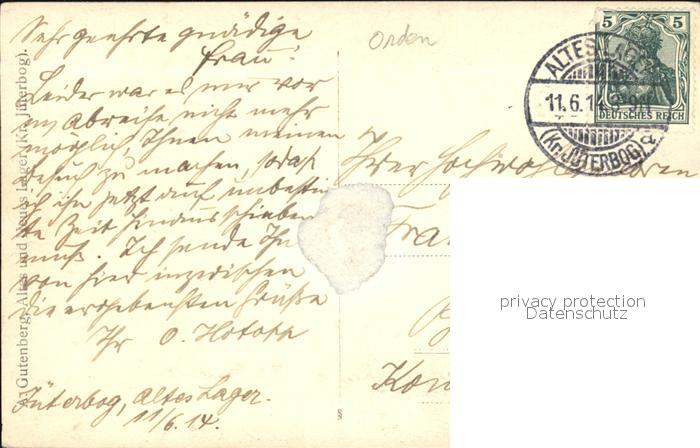 Sehr geehrte gnädige
Frau!
Leider war es mir vor
m/ Abreise nicht mehr
möglich, Ihnen meinen
Besuch zu machen, sodaß
ich ihn jetzt auf unbestimm
te Zeit hinausschieben
muß. Ich sende Ihnen
von hier inzwischen
die ergebensten Grüße
Ihr O.
Jüterbog, Altes Lager.
11/6.14.
A. Gutenberg, Altes und Neues Lager (Kr. Jüterbog).
Orden
5 5
DEUTSCHES REICH
ALTES LAGER
11.6.14. 8-9N
(Kr. JÜTERBOG) a
Ihrer Hochwohlgeboren
Frau
privacy protection
Datenschutz